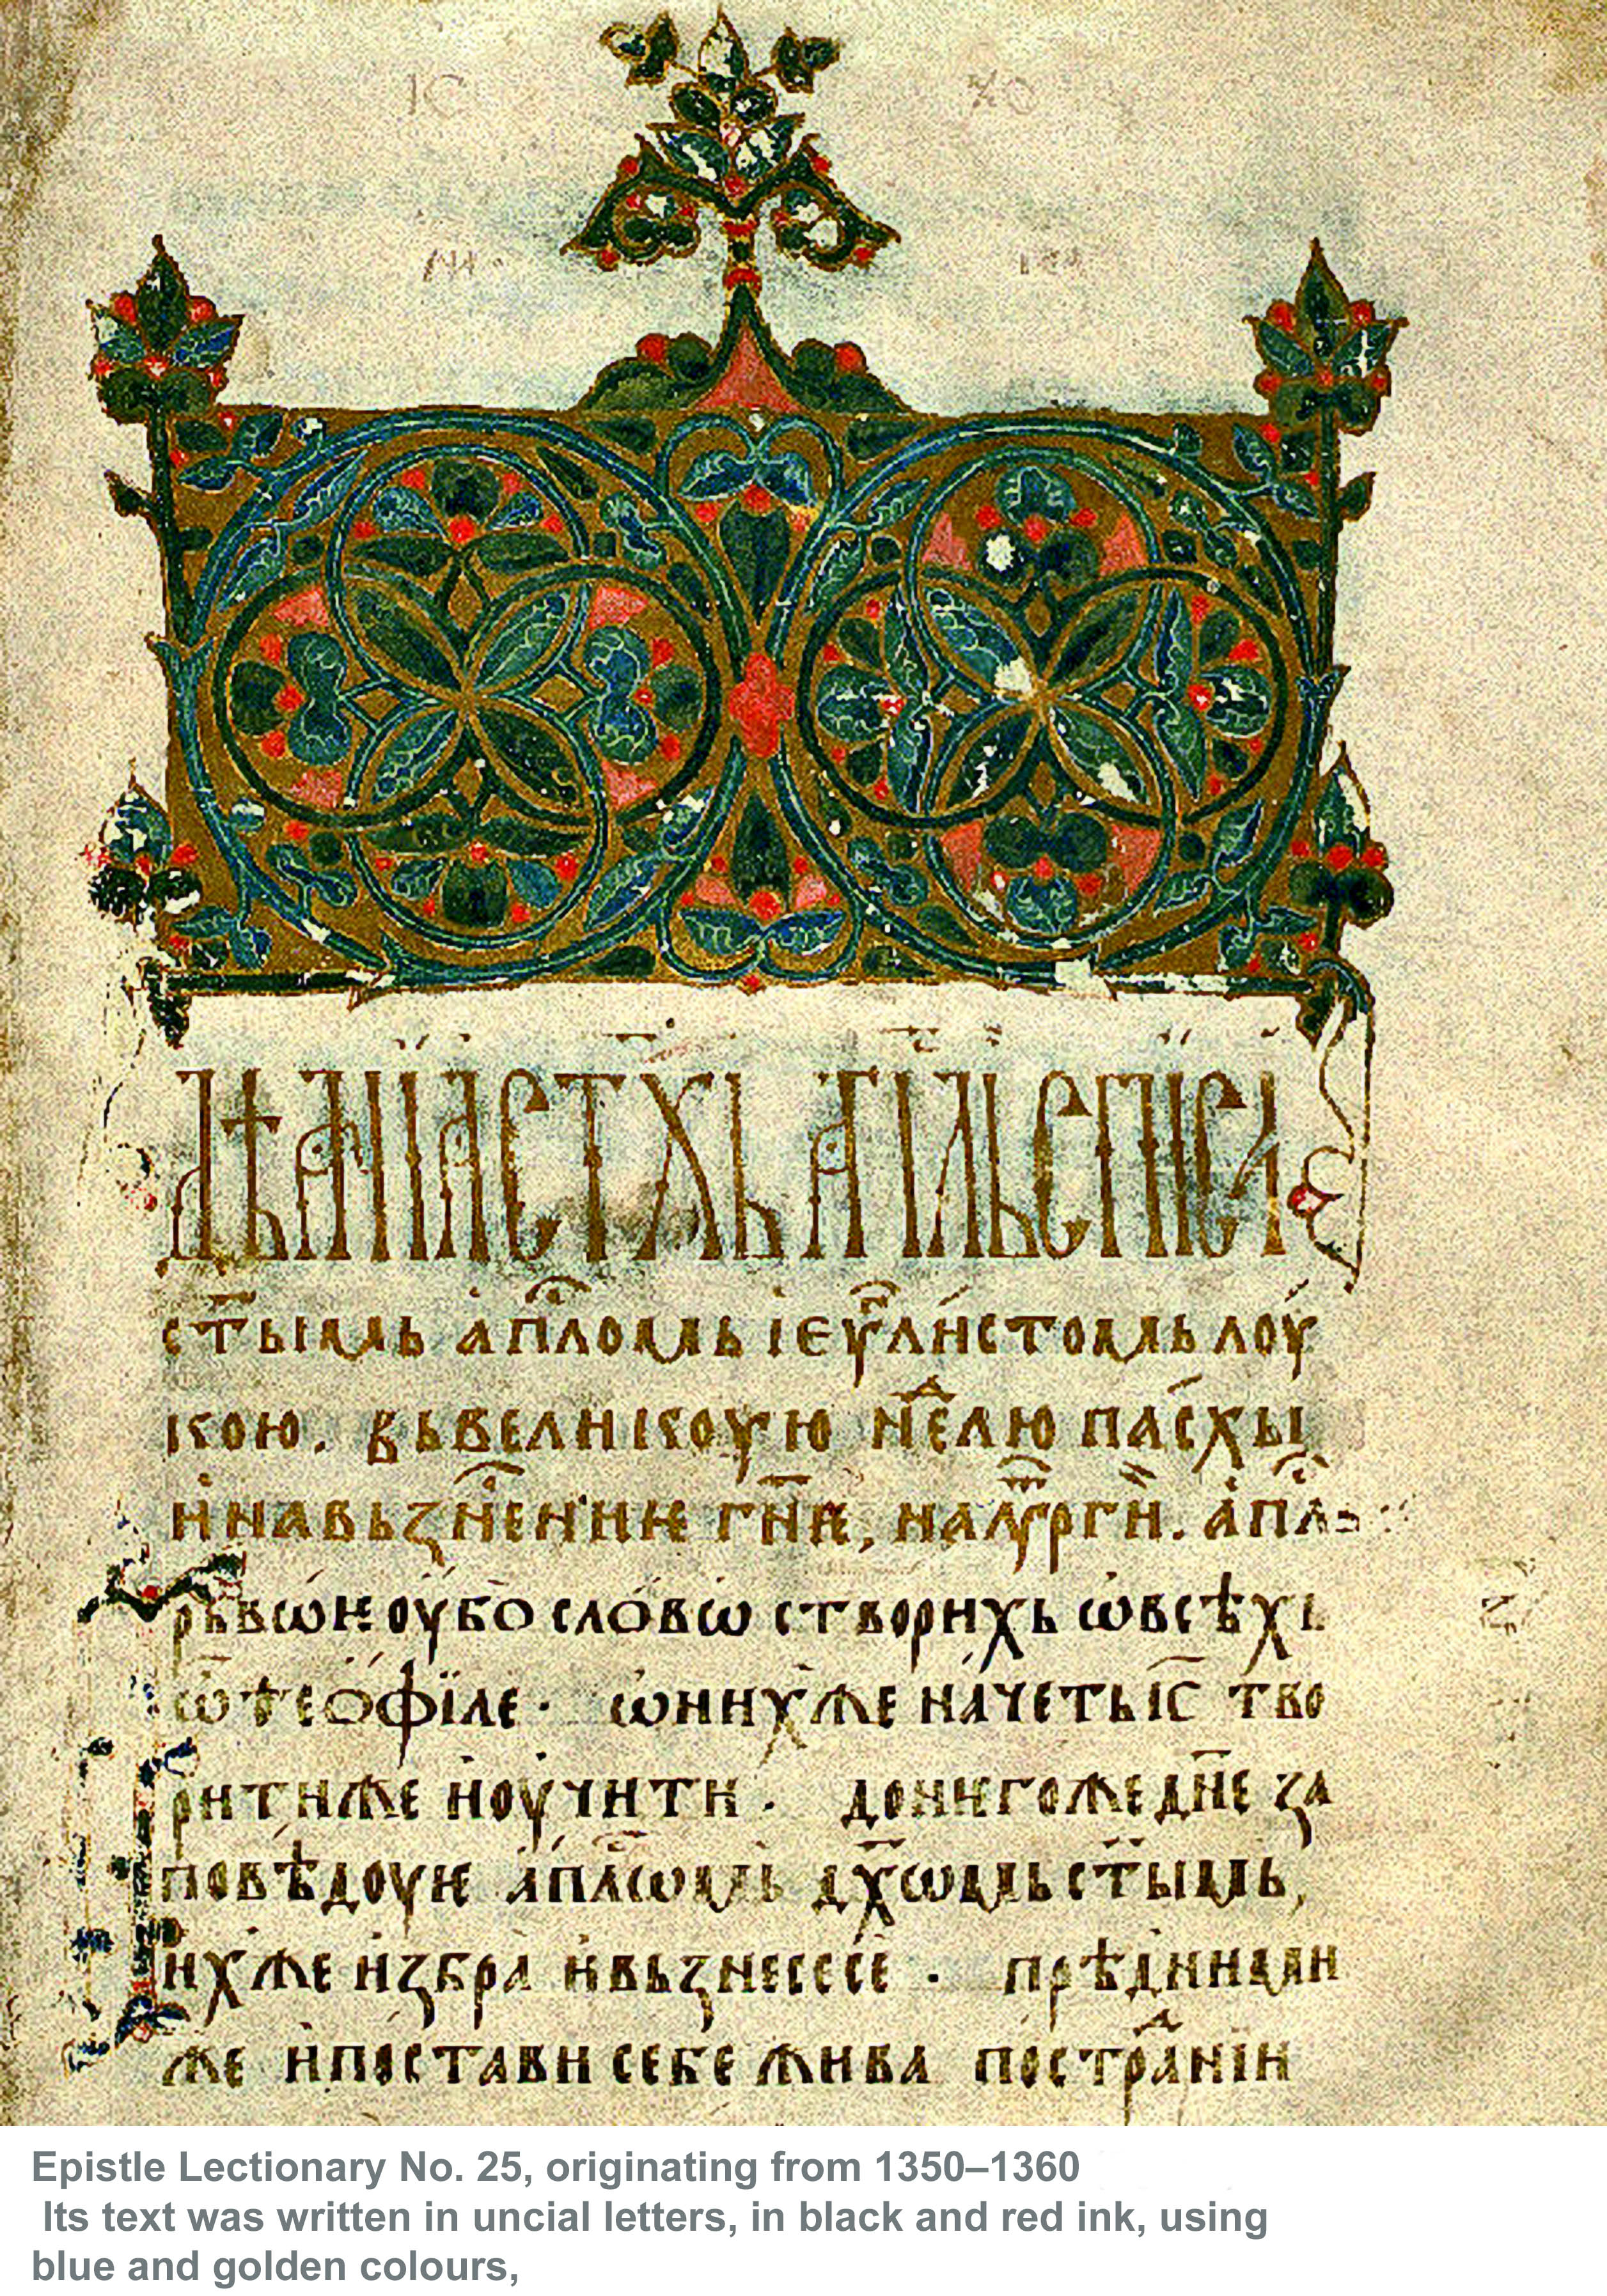 ДѢꙖНІꙖ СТ҃ХЬ А҃ПЛЬ СПИСА
ст҃ымь ап҇лѡмь і еѵ҃листомь лоу
кою. вьвеликоую не҇лю пасхы
и навьзн҇ениѥ гн҃ѥ, на лѵ҇ргі. ап҇ль
рьвоѥ оубо слово створихь ѡ всѣхь
ѿ теофіле · ѡ нихже начеть іс҃ тво
ритиже и оучити · донѥгоже дн҃е за
повѣдоуѥ ап҇лѡмь дх҃ѡмь ст҃ымь,
ихже избра и вьзнесесе · прѣдними
же и постави себе жива по страніи
Epistle Lectionary No. 25, originating from 1350–1360
Its text was written in uncial letters, in black and red ink, using
blue and golden colours,